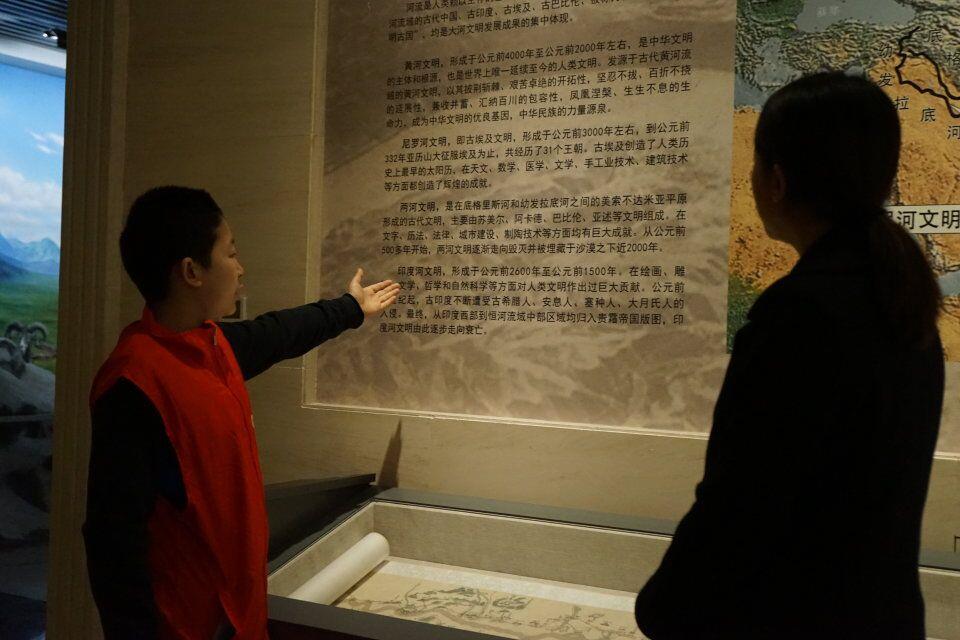 河流是人类赖以生存的
河流域的古代中国、古印度、古埃及、古巴比伦，被称
明古国”，均是大河文明发展成果的集中体现。
黄河文明，形成于公元前4000年至公元前2000年左右，是中华文明
的主体和根源，也是世界上唯一延续至今的人类文明。发源于古代黄河流
域的黄河文明，以其披荆斩棘、艰苦卓绝的开拓性，坚忍不拔、百折不挠
的延展性，兼收并蓄、汇纳百川的包容性，凤凰涅槃、生生不息的生
命力，成为中华文明的优良基因，中华民族的力量源泉。
尼罗河文明，即古埃及文明，形成于公元前3000年左右，到公元前
332年亚历山大征服埃及为止，共经历了31个王朝。古埃及创造了人类历
史上最早的太阳历，在天文、数学、医学、文学、手工业技术、建筑技术
等方面都创造了辉煌的成就。
两河文明，是在底格里斯河和幼发拉底河之间的美索不达米亚平原
形成的古代文明，主要由苏美尔、阿卡德、巴比伦、亚述等文明组成，在
文字、历法、法律、城市建设、制陶技术等方面均有巨大成就。从公元前
500多年开始，两河文明逐渐走向毁灭并被埋藏于沙漠之下近2000年。
印度河文明，形成于公元前2600年至公元前1500年。在绘画、雕
文学，哲学和自然科学等方面对人类文明作出过巨大贡献。公元前
纪起，古印度不断遭受古希腊人、安息人、塞种人、大月氏人的
入侵。最终，从印度西部到恒河流域中部区域均归入贵霜帝国版图，印
度河文明由此逐步走向衰亡。
幼发拉底河
底格
河文明